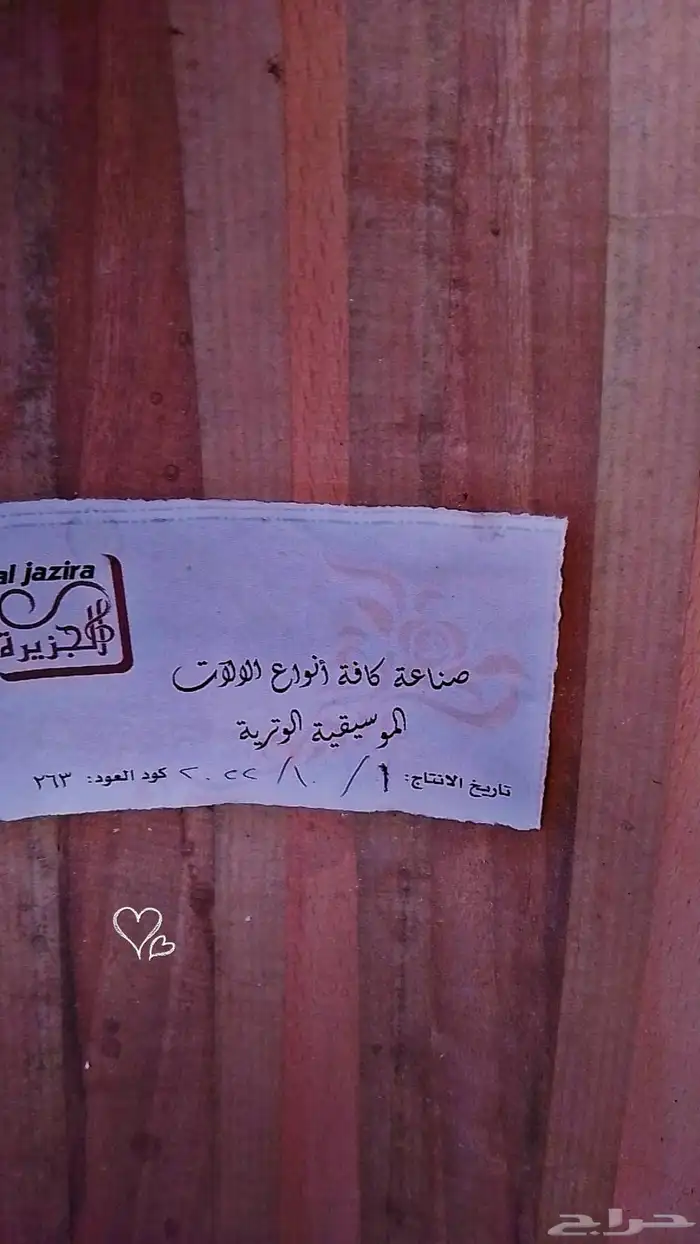 al jazira
الجزيرة
صناعة كافة أنواع الالآت
الموسيقية الوترية
تاريخ الانتاج: ١ / ١٠ / ٢٠٢٢ كود العود: ٢٦٣
حراج